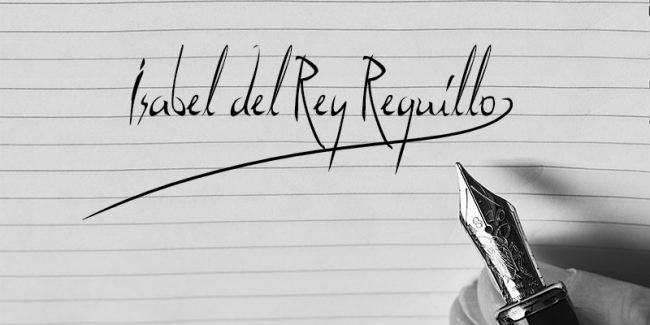 Isabel del Rey Reguillo